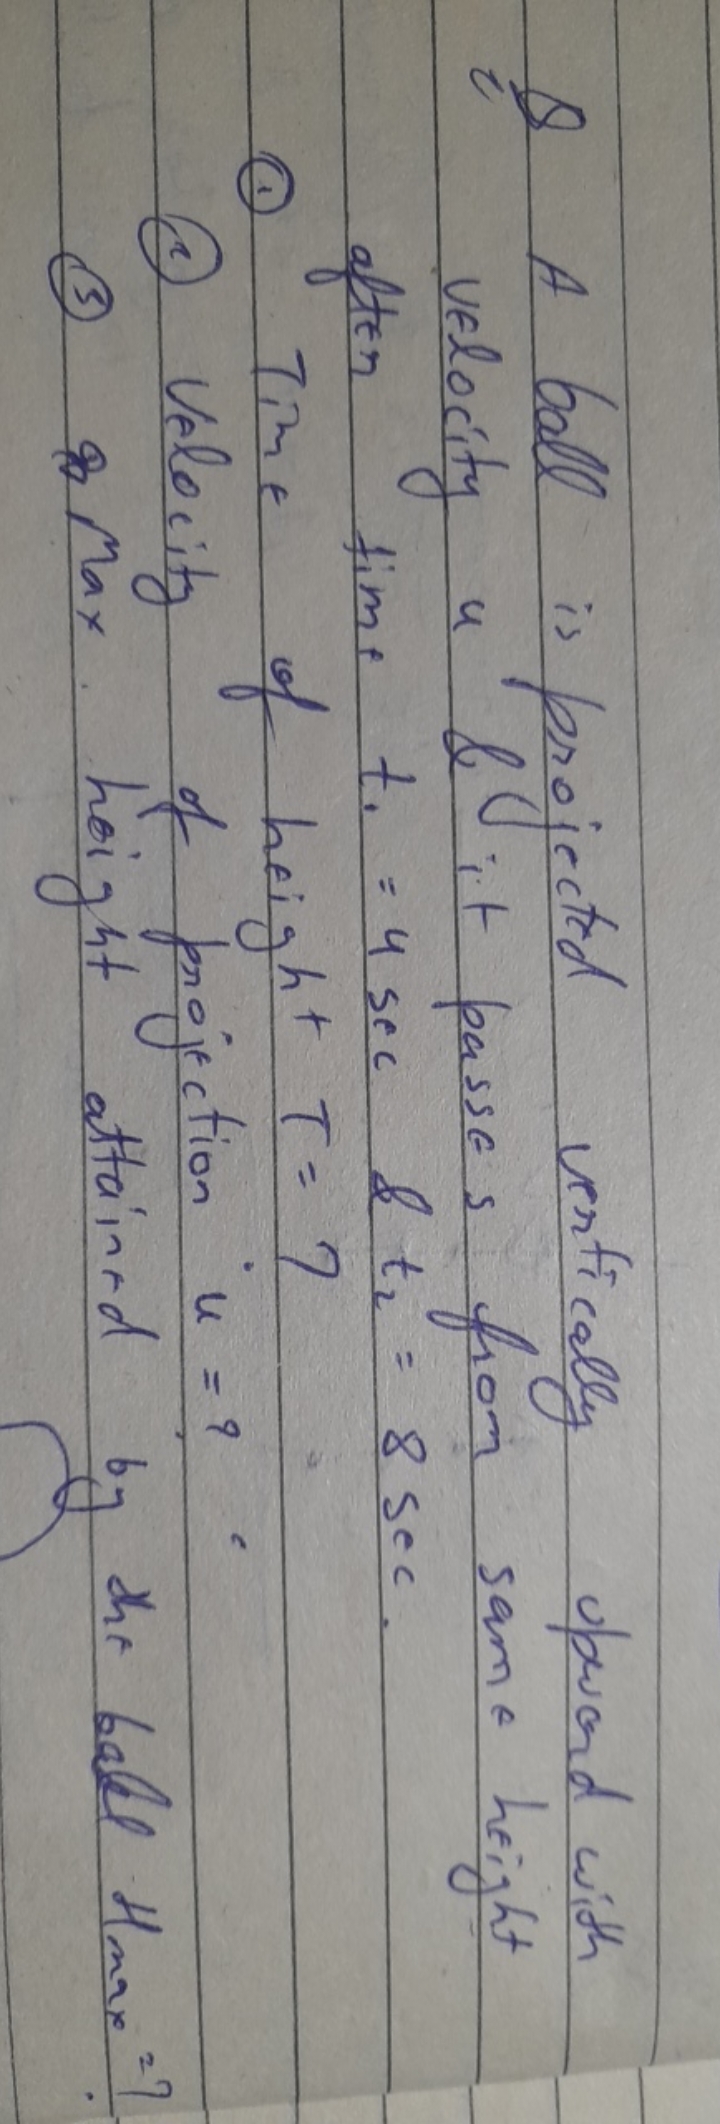 Q A ball is projected vertically upward with
velocity u & it passes from same height
after time t₁ = 4 sec & t₂ = 8 sec.
① Time of height T = ?
② Velocity of projection u = ?
③ Max. height attained by the ball Hmax = ?